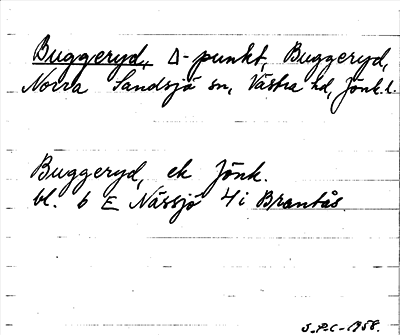 Buggeryd, Δ-punkt, Buggeryd,
Norra Sandsjö sn, Västra hd, Jönk.l.
Buggeryd, ek Jönk.
bl. 6 E Nässjö 4i Brantås.
S.P.C-1958.